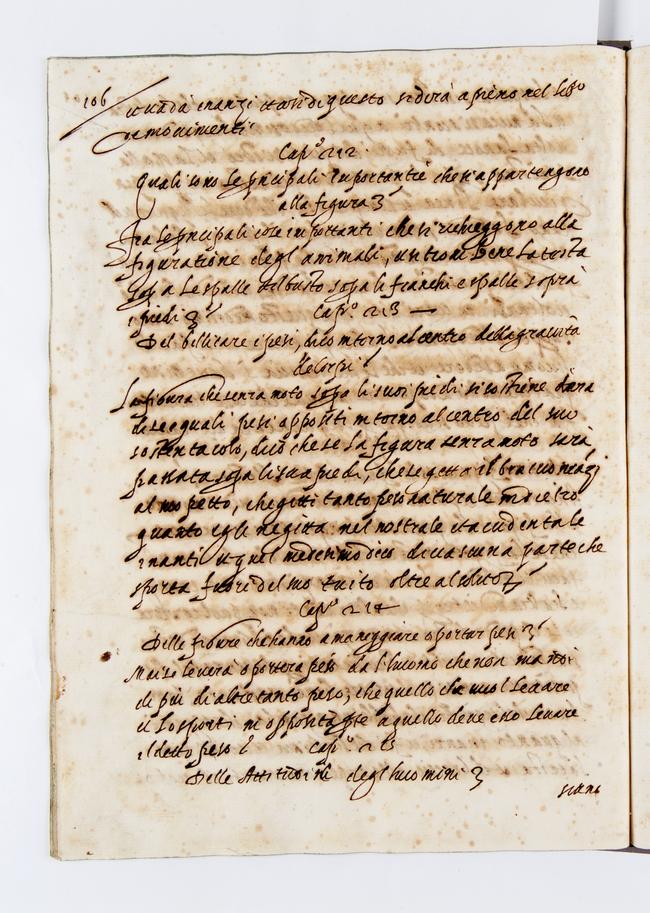 106
innanzi di questo si dirà a pieno nel libº
de movimenti
Capº 212.
Quali sono le principali importantie che s'appartengono
alla figura
Fra le principali cose importanti che si richieggono alla
figuratione degl'animali, situar bene la testa
sopra le spalle il busto sopra li fianchi e spalle sopra
i piedi
Capº 213
Del bilicare i pesi, dico intorno al centro della gravità
de corpi
La figura che senza moto sopa li suoi piedi si sostiene dara
di se equali pesi oppositi intorno al centro del suo
sostentacolo, dico che se la figura senza moto sarà
posata sopa li sua piedi, che se getta il braccio inanzi
al suo petto, che gitti tanto peso naturale indietro
quanto egli ne gitta nel naturale et accidentale
inanti et quel medesimo dico di ciascuna parte che
sporta fuori del suo tutto oltre al solito
Capº 214
Delle figure che hanno a maneggiare o portar pesi
Mai si leverà o portera peso da l'huomo che non mandi
di più di altretanto peso, che quello che vuol levare
in opposita pte a quello deve esso levare
il detto peso
Capº 215
Delle Attitudini degl'huomini
siano